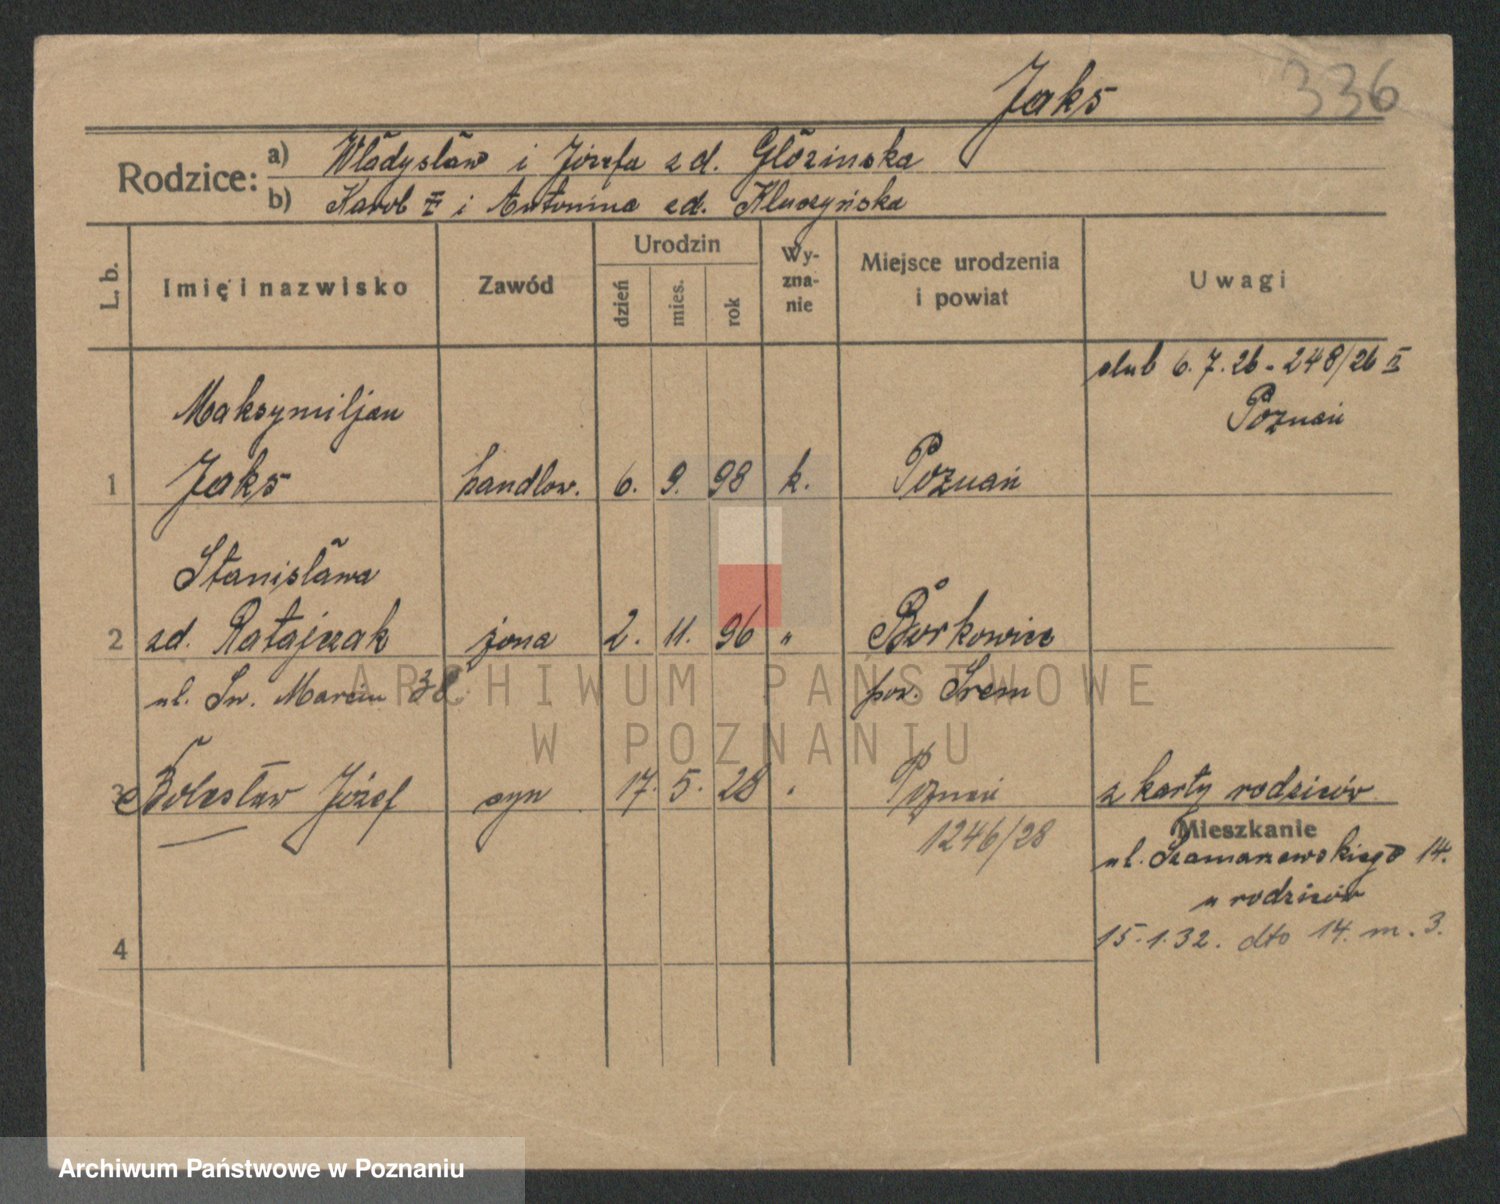 Jaks
336
Rodzice:
a) Władysław i Józefa zd. Glózinska
b) Karol i Antonina zd. Kluczyńska
L. b.
Imię i nazwisko
Zawód
Urodzin
dzień
mies.
rok
Wy-
zna-
nie
Miejsce urodzenia
i powiat
Uwagi
ślub 6.7.26 - 248/26 II
Poznań
Maksymiljan
1 Jaks handlow. 6. 9. 98 k. Poznań
Stanisława
2 zd. Ratajczak żona 2. 11. 96 " Borkowice
ul. Św. Marcin 38 pow. Śrem
3 Bolesław Józef syn 17. 5. 28 Poznań z karty rodziców
1246/28
Mieszkanie
ul. Szamarzewskiego 14.
u rodziców
15.1.32. dto 14. m. 3.
4
ARCHIWUM PAŃSTWOWE
W POZNANIU
Archiwum Państwowe w Poznaniu